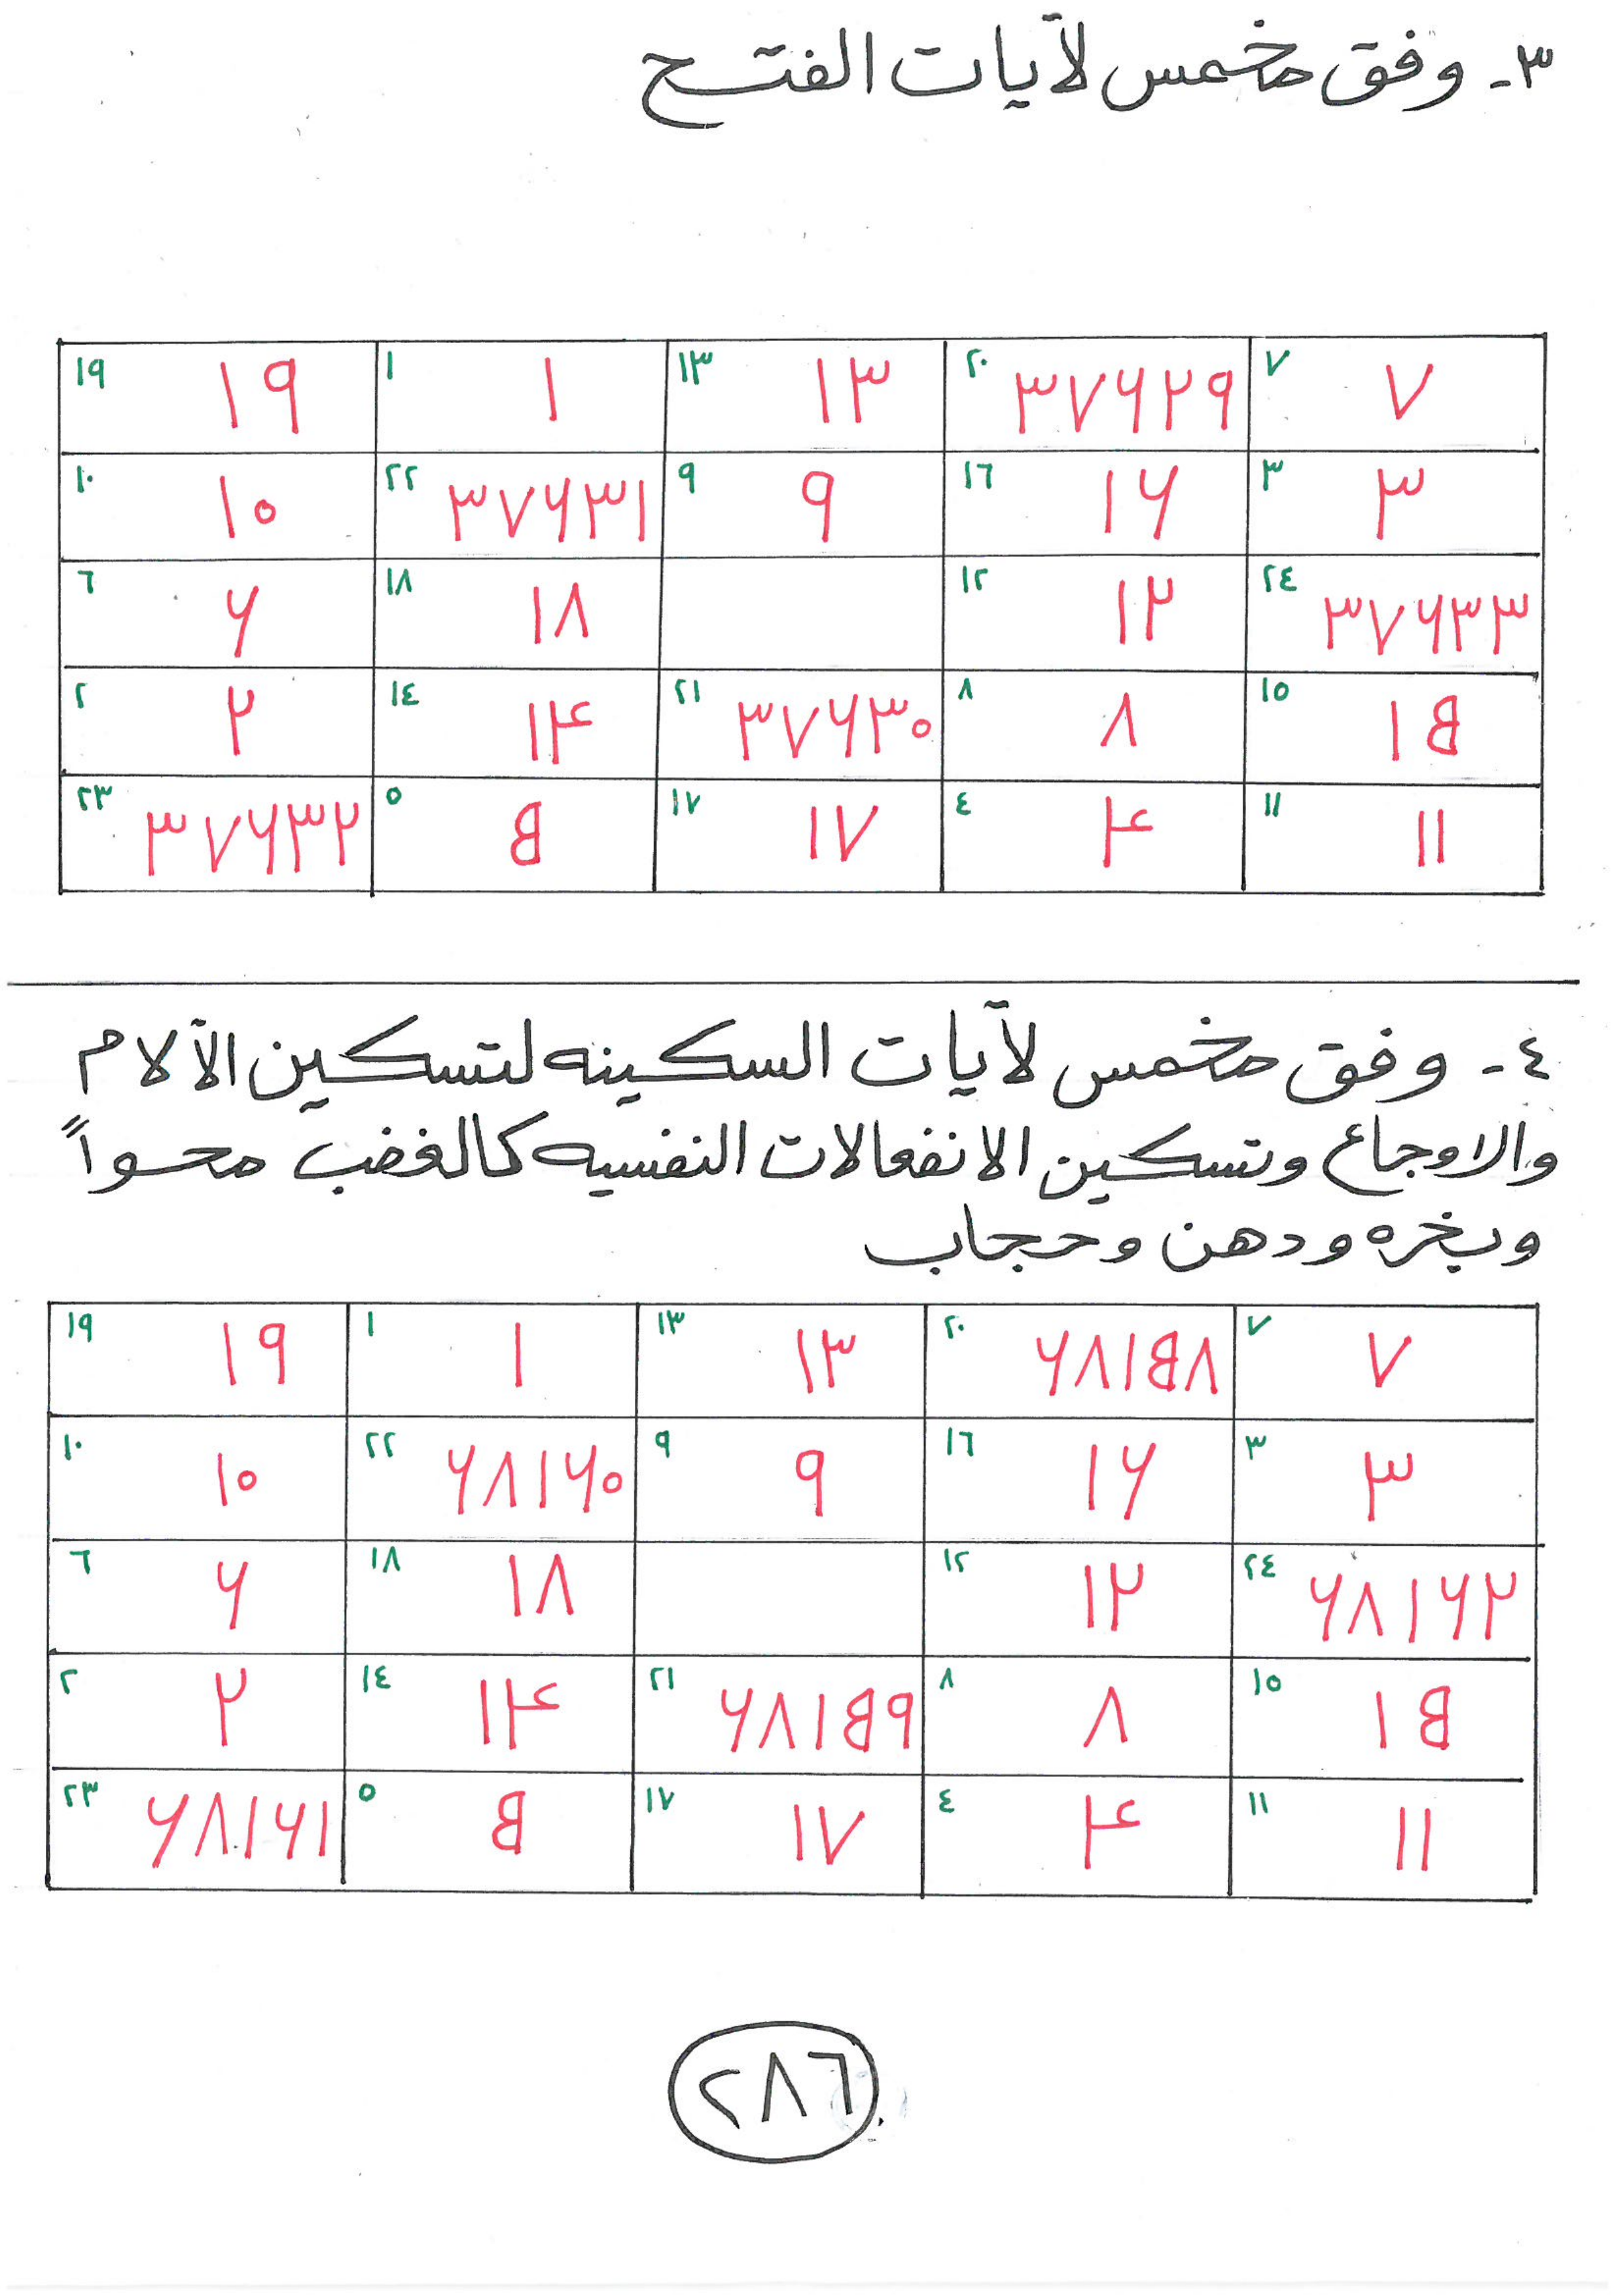 ٣- وفق مخمس لآيات الفتح
١٩ ١٩ ١ ١ ١٣ ١٣ ٢٠ ٣٧٦٢٩ ٧ ٧
١٠ ١٠ ٢٢ ٣٧٦٣١ ٩ ٩ ١٦ ١٦ ٣ ٣
٦ ٦ ١٨ ١٨ ١٢ ١٢ ٢٤ ٣٧٦٣٣
٢ ٢ ١٤ ١٤ ٢١ ٣٧٦٣٠ ٨ ٨ ١٥ ١٥
٢٣ ٣٧٦٣٢ ٥ ٥ ١٧ ١٧ ٤ ٤ ١١ ١١
٤- وفق مخمس لآيات السكينه لتسكين الآلام
والاوجاع وتسكين الانفعالات النفسيه كالغضب محواً
وبخره ودهن وحجاب
١٩ ١٩ ١ ١ ١٣ ١٣ ٢٠ ٦٨١٥٨ ٧ ٧
١٠ ١٠ ٢٢ ٦٨١٦٠ ٩ ٩ ١٦ ١٦ ٣ ٣
٦ ٦ ١٨ ١٨ ١٢ ١٢ ٢٤ ٦٨١٦٢
٢ ٢ ١٤ ١٤ ٢١ ٦٨١٥٩ ٨ ٨ ١٥ ١٥
٢٣ ٦٨١٦١ ٥ ٥ ١٧ ١٧ ٤ ٤ ١١ ١١
٢٨٦